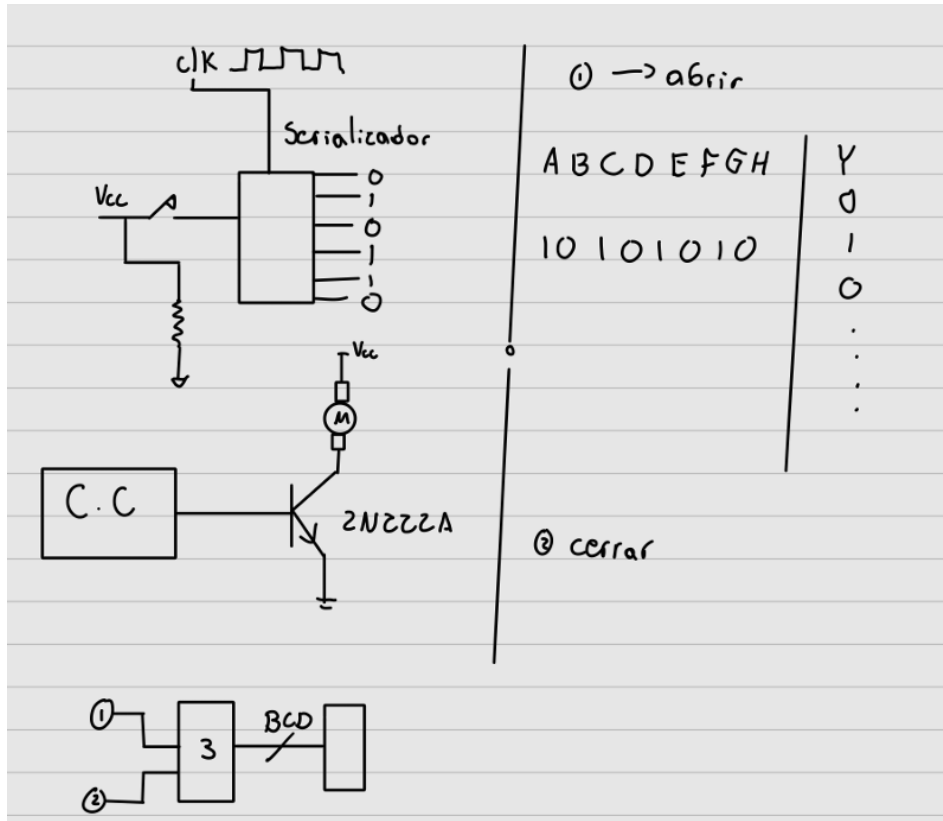 clk
Serializador
Vcc
0
1
0
1
1
0
Vcc
M
C.C
2N222A
① → abrir
A B C D E F G H | Y
0
10101010 | 1
0
.
.
.
.
② cerrar
①
3
BCD
②